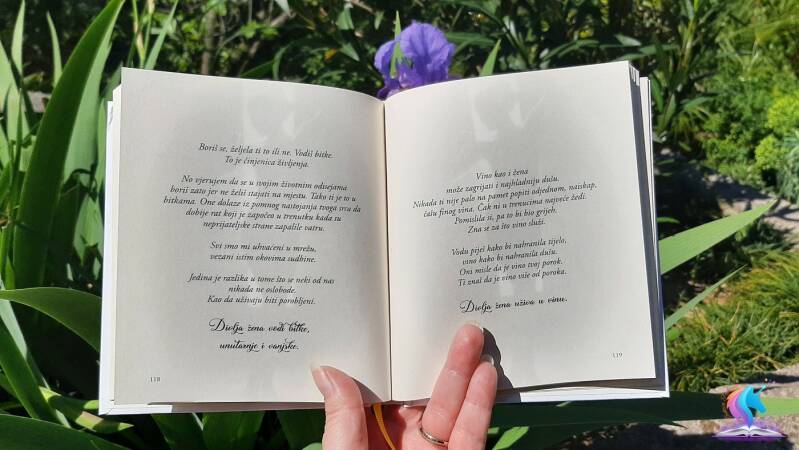 Boriš se, željela ti to ili ne. Vodiš bitke.
To je činjenica življenja.
No vjerujem da se u svojim životnim odisejama
boriš zato jer ne želiš stajati na mjestu. Tako ti je to u
bitkama. One dolaze iz pomnog nastojanja tvoga srca da
dobije rat koji je započeo u trenutku kada su
neprijateljske strane zapalile vatru.
Svi smo mi uhvaćeni u mrežu,
vezani istim okovima sudbine.
Jedina je razlika u tome što se neki od nas
nikada ne oslobode.
Kao da uživaju biti porobljeni.
Divlja žena vodi bitke,
unutarnje i vanjske.
118
Vino kao i žena
može zagrijati i najhladniju dušu.
Nikada ti nije palo na pamet popiti odjednom, naiskap,
čašu finog vina. Čak ni u trenucima najveće žeđi.
Pomislila si, pa to bi bio grijeh.
Zna se za što vino služi.
Vodu piješ kako bi nahranila tijelo,
vino kako bi nahranila dušu.
Oni misle da je vino tvoj porok.
Ti znaš da je vino više od poroka.
Divlja žena uživa u vinu.
119